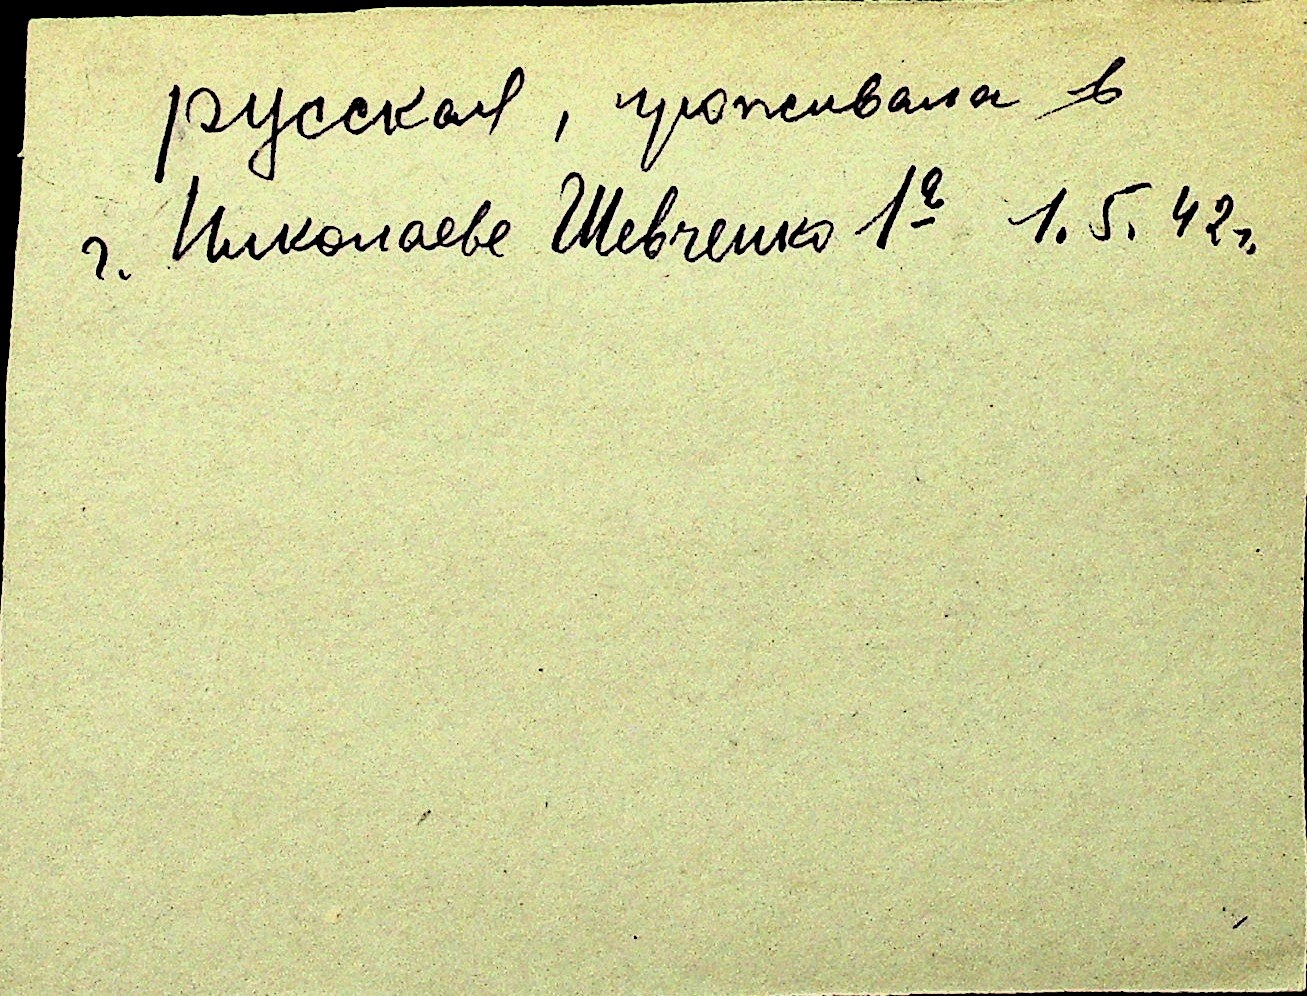 русская, проживала в
г. Николаеве Шевченко 1а 1.5.42г.